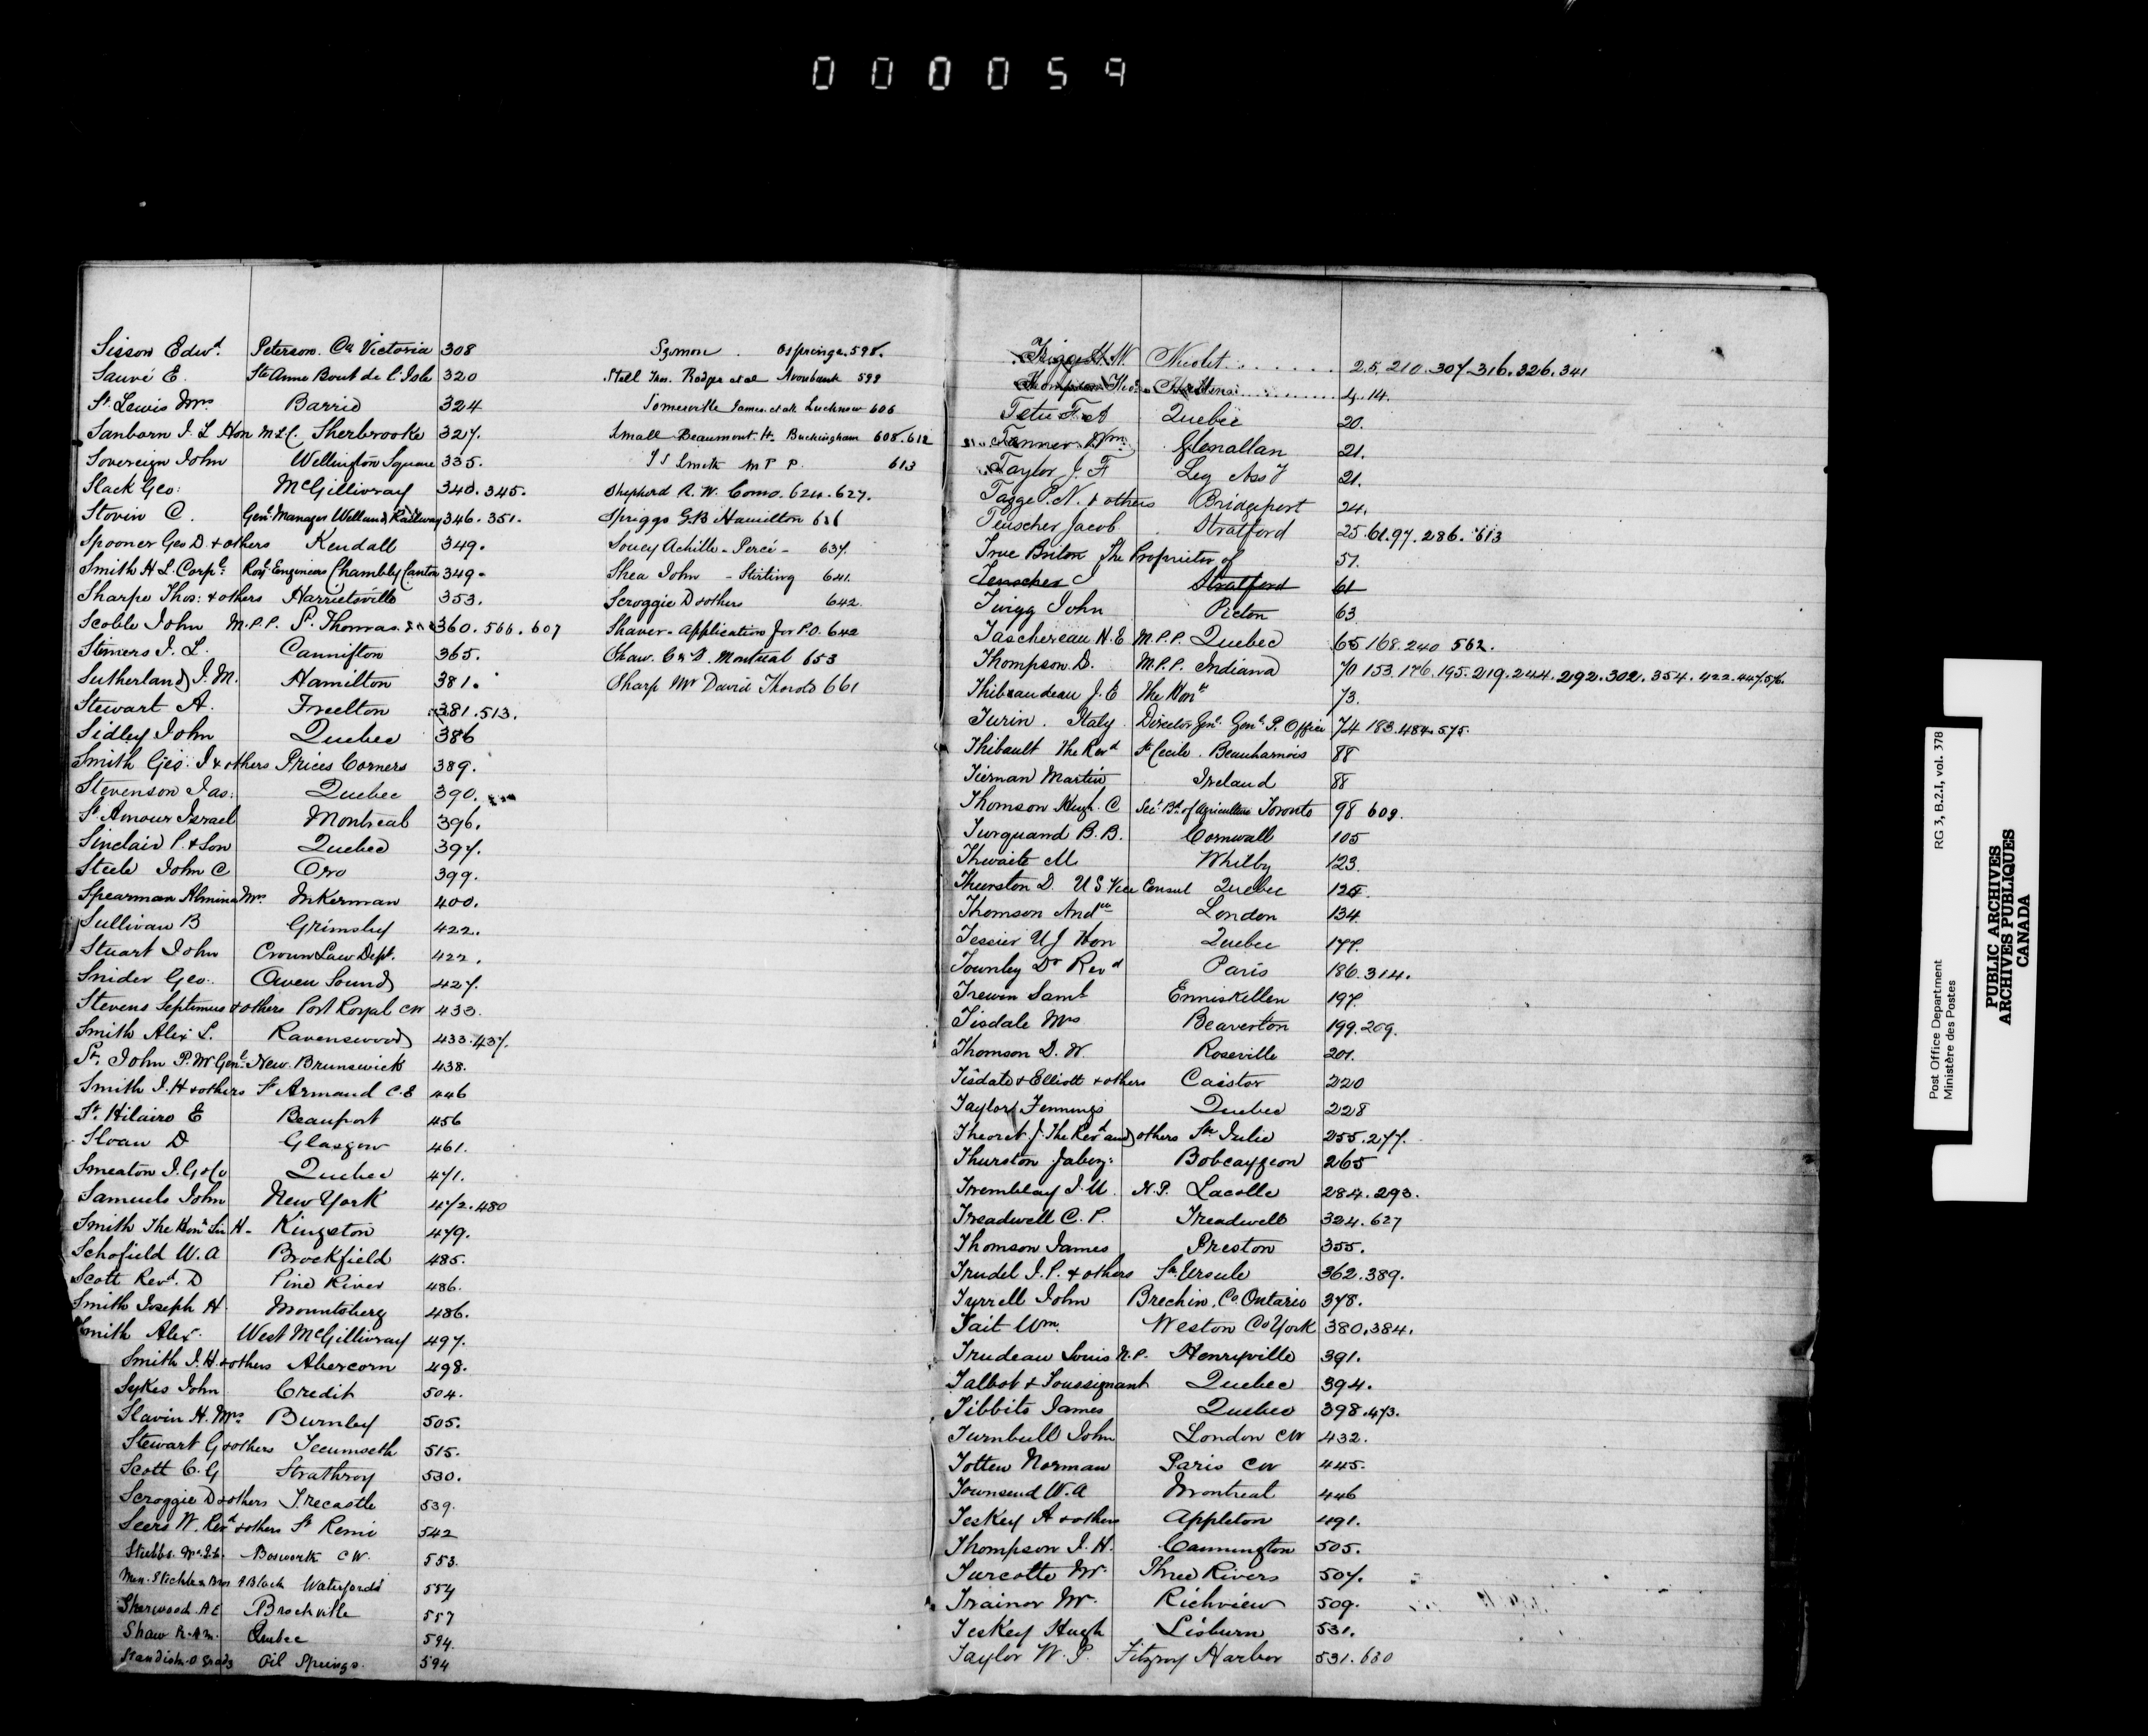 0 0 0 0 5 9
Sisson Edwd. Peterson. Co Victoria 308
Sauvé E. Ste Anne Bout de l'Isle 320
St Lewis Mrs Barrie 324
Sanborn J. L Hon MLC. Sherbrooke 327.
Sovereign John Wellington Square 335.
Slack Geo: McGillivray 340.345.
Stovin C. Genl Manager Welland Railway 346.351.
Spooner Geo D. & others Kendall 349.
Smith H L. Corpl. Royl Engineers Chambly Canton 349-
Sharpe Thos: & others Harrietsville 353.
Scoble John M.P.P. St. Thomas. 360.566.607
Stimers J. L. Cannifton 365.
Sutherland J. M. Hamilton 381.
Stewart A. Freelton 381.513.
Sidley John Quebec 386
Smith Geo: J & others Prices Corners 389.
Stevenson Jas: Quebec 390.
St Amour Israel Montreal 396.
Sinclair P. & Son Quebec 397.
Steele John C Oro 399.
Spearman Almina Mrs. Inkerman 400.
Sullivan B Grimsby 422.
Stuart John Crown Law Dept. 422.
Snider Geo. Owen Sound 427.
Stevens Septimus & others Port Royal CW 433.
Smith Alex L. Ravenswood 433.437.
St. John P.M Genl. New Brunswick 438.
Smith J. H & others St Armand C.E 446
St. Hilaire E Beauport 456
Sloan D Glasgow 461.
Smeaton J. G & Co Quebec 471.
Samuels John New York 472.480
Smith The Honr Sir H- Kingston 479.
Schofield W. A Brockfield 485.
Scott Revd. D Pine River 486.
Smith Joseph H Mountsberg 486.
Smith Alex. West McGillivray 497.
Smith J. H. & others Abercorn 498.
Sykes John Credit 504.
Slavin H. Mrs Burnley 505.
Stewart G & others Tecumseth 515.
Scott C. G Strathroy 530.
Scroggie D & others Trecastle 539.
Seers W. Revd & others St Remi 542
Stubbs. Bosworth CW. 553.
Black Waterford 554
Sherwood A E Brockville 557
Shaw Quebec 594.
Standish Oil Springs. 594
Osprings. 598.
Stell Thos. Rodger et al Avonbank 599
Somerville James. et al. Lucknow 606
Small Beaumont H. Buckingham 608.612
Smith M P P. 613
Shepherd R. W. Como. 624.627.
Spriggs G.B Hamilton
Soucy Achille - Percé - 637.
Shea John - Stirling 641.
Scroggie D & others 642.
Shaver - application for P.O. 642
Shaw. Montreal 653
Sharp Mr David Thorold 661
Trigge H. W. Nicolet 2.5.210.307.316.326.341
Thompson Theo. 4.14.
Tetu F. A Quebec 20.
Tanner Wm. Glenallan 21.
Taylor J. F Leg Assy 21.
Tagge P. N. & others Bridgeport 24.
Teuscher Jacob. Stratford 25.61.97.286.613
True Briton The Proprietor of 57.
Teuscher J Stratford 61
Twigg John Picton 63
Taschereau H. E M.P.P. Quebec 65 168.240 562.
Thompson D. M.P.P. Indiana 70 153.176.195.219.244.292.302.354.422.447.576.
Thibaudeau J. E The Honr 73.
Turin. Italy Director Genl. Genl. P. Office 74 183.484.575.
Thibault The Revd St Cecile. Beauharnois 88
Tiernan Martin Ireland 88
Thomson Hugh. C Secy. Bd. of Agriculture Toronto 98 609.
Turquand B. B. Cornwall 105
Thwaite M Whitby 123.
Thurston D. U S Vice Consul Quebec 125.
Thomson Andw London 134
Tessier U J Hon Quebec 177.
Townley Dr Revd Paris 186.314.
Trewin Saml Enniskillen 197.
Tisdale Mrs Beaverton 199.209.
Thomson D. W. Roseville 201.
Tisdale & Elliott & others Caistor 220
Taylor Fennings Quebec 228
Theoret J. The Revd and others Ste Julie 255.277.
Thurston Jabez: Bobcaygeon 265
Tremblay J. U. N.P. Lacolle 284.293.
Treadwell C. P. Treadwell 324.627
Thomson James Preston 355.
Trudel J. P. & others Ste. Ursule 362.389.
Tyrrell John Brechin, Co. Ontario 378.
Tait Wm. Weston Co York 380.384.
Trudeau Louis N.P. Henryville 391.
Talbot & Toussignant Quebec 394.
Tibbits James Quebec 398.473.
Turnbull John London CW 432.
Totten Norman Paris CW 445.
Townsend W. A Montreal 446
Teskey A & others Appleton 491.
Thompson J. H. Cannington 505.
Turcotte Mr. Three Rivers 507.
Trainor Mr. Richview 509.
Teskey Hugh Lisburn 531.
Taylor W. P. Fitzroy Harbor 531.630
Post Office Department RG 3, B.2.I, vol. 378
Ministère des Postes
PUBLIC ARCHIVES
ARCHIVES PUBLIQUES
CANADA